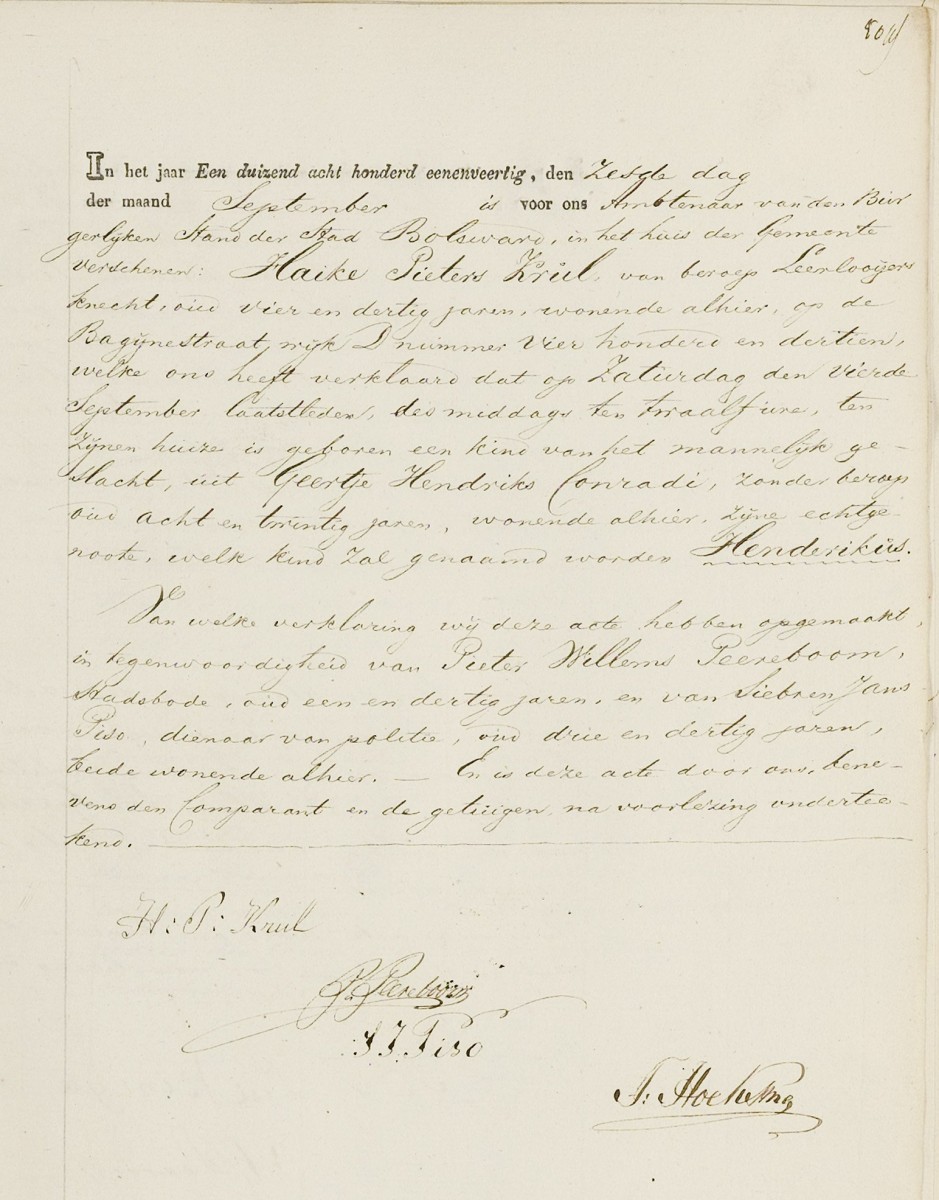 In het jaar Een duizend acht honderd eenenveertig, den Zesde dag
der maand September is voor ons Ambtenaar van den Bur
gerlijken Stand der Stad Bolsward, in het huis der Gemeente
verschenen: Haike Pieters Krul, van beroep Leerlooijers
knecht, oud vier en dertig jaren, wonende alhier, op de
Bagijnestraat, wijk D nummer Vier honderd en dertien,
welke ons heeft verklaard dat op Zaturdag den vierde
September laatstleden, des middags ten twaalf ure, ten
zijnen huize is geboren een kind van het mannelijk ge-
slacht, uit Geertje Hendriks Conradi, zonder beroep
oud acht en twintig jaren, wonende alhier, zijne echtge-
noote, welk kind zal genaamd worden Henderikus.
Van welke verklaring wij deze acte hebben opgemaakt,
in tegenwoordigheid van Pieter Willems Peereboom,
Stadsbode, oud een en dertig jaren, en van Siebren Jans
Piso, dienaar van politie, oud drie en dertig jaren,
beide wonende alhier. — En is deze acte door ons, bene-
vens den Comparant en de getuigen, na voorlezing onderte-
kend.
H: P: Krul
P. Peereboom
S J. Piso